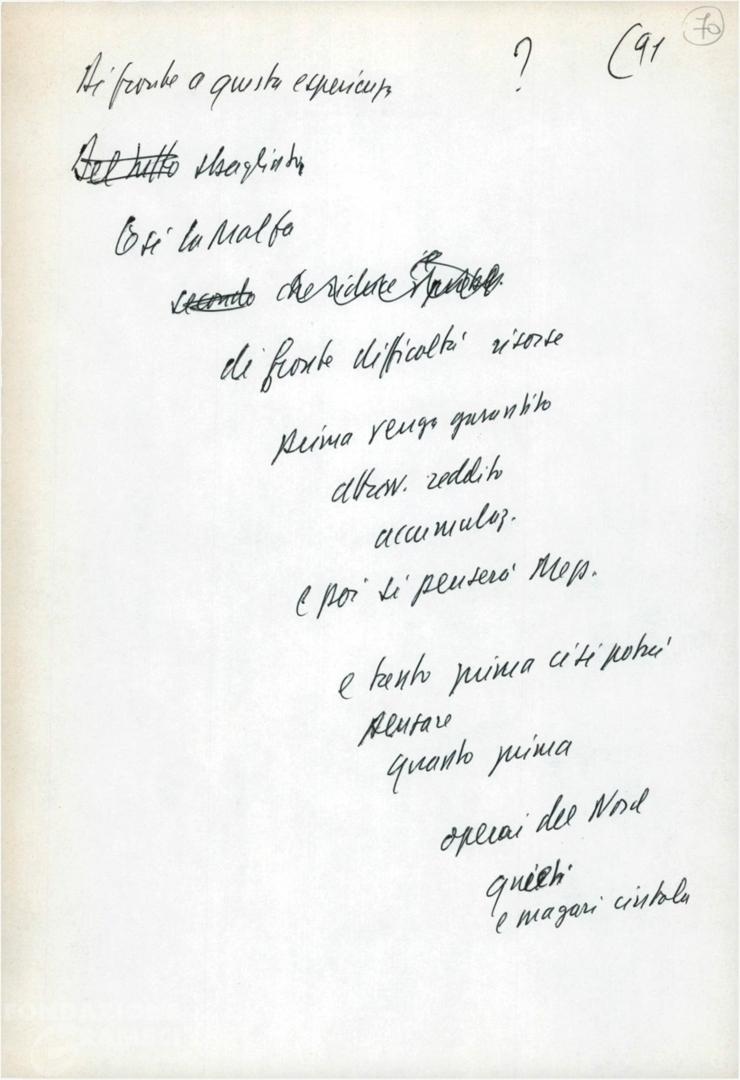 70
(91
?
Di fronte a questa esperienza
Del tutto sbagliata
Così La Malfa
secondo che riduce il
di fronte difficoltà risorse
prima venga garantito
attrav. reddito
accumulaz.
e poi si penserà Mep.
e tanto prima ci si potrà
pensare
quanto prima
operai del Nord
quieti
e magari cintola
FONDAZIONE
RAMELLI